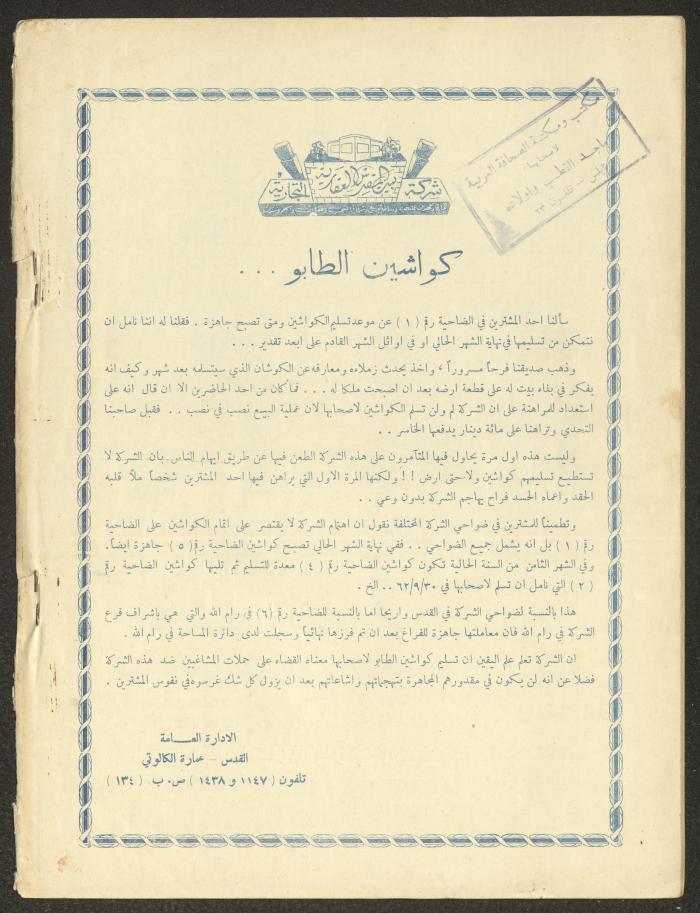 شركة بيت المقدس العقارية التجارية
مكتب ومكتبة الصحافة العربية
لاصحابها
ماجد القطب واولاده
نابلس - تلفون ٢٣
كواشين الطابو . . .
سألنا احد المشترين في الضاحية رقم ( ١ ) عن موعد تسليم الكواشين ومتى تصبح جاهزة . فقلنا له اننا نامل ان
نتمكن من تسليمها في نهاية الشهر الحالي او في اوائل الشهر القادم على ابعد تقدير . . .
وذهب صديقنا فرحاً مسروراً ، واخذ يحدث زملاءه ومعارفه عن الكوشان الذي سيتسلمه بعد شهر وكيف انه
يفكو في بناء بيت له على قطعة ارضه بعد ان اصبحت ملكا له . . . فما كان من احد الحاضرين الا ان قال انه على
استعداد للمراهنة على ان الشركة لم ولن تسلم الكواشين لاصحابها لان عملية البيع نصب في نصب . . فقبل صاحبنا
التحدي وتراهنا على مائة دينار يدفعها الخاسر . .
وليست هذه اول مرة يحاول فيها المتآمرون على هذه الشركة الطعن فيها عن طريق ايهام الناس بان الشركة لا
تستطيع تسليمهم كواشين ولا حتى ارض !! ولكنها المرة الاول التي يراهن فيها احد المشترين شخصاً ملأ قلبه
الحقد واعماه الحسد فراح يهاجم الشركة بدون وعي . .
وتطميناً للمشترين في ضواحي الشركة المختلفة نقول ان اهتمام الشركة لا يقتصر على اتمام الكواشين على الضاحية
رقم ( ١ ) بل انه يشمل جميع الضواحي . . ففي نهاية الشهر الحالي تصبح كواشين الضاحية رقم ( ٥ ) جاهزة ايضاً.
وفي الشهر الثامن من السنة الحالية تكون كواشين الضاحية رقم ( ٤ ) معدة للتسليم ثم تليها كواشين الضاحية رقم
( ٢ ) التي نامل ان تسلم لاصحابها في ٦٢/٩/٣٠ .. الخ .
هذا بالنسبة لضواحي الشركة في القدس واريحا اما بالنسبة للضاحية رقم (٦) في رام الله والتي هي باشراف فرع
الشركة في رام الله فان معاملتها جاهزة للفراغ بعد ان تم فرزها نهائياً وسجلت لدى دائرة المساحة في رام الله .
ان الشركة تعلم علم اليقين ان تسليم كواشين الطابو لاصحابها معناه القضاء على حملات المشاغبين ضد هذه الشركة
فضلا عن انه لن يكون في مقدورهم المجاهرة بتهجماتهم واشاعاتهم بعد ان يزول كل شك غرسوه في نفوس المشترين .
الادارة العـــامة
القدس - عمارة الكالوتي
تلفون ( ١١٤٧ و ١٤٣٨ ) ص. ب ( ١٣٤ )